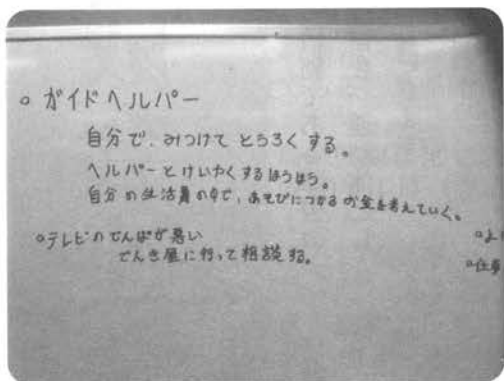 ○ ガイドヘルパー
自分で、みつけて とうろく する。
ヘルパーとけいやくするほうほう。
自分の生活費の中で、あそびにつかるお金を考えていく。
○テレビのでんぱが悪い
でんき屋に行って相談する。
○よ
○仕事